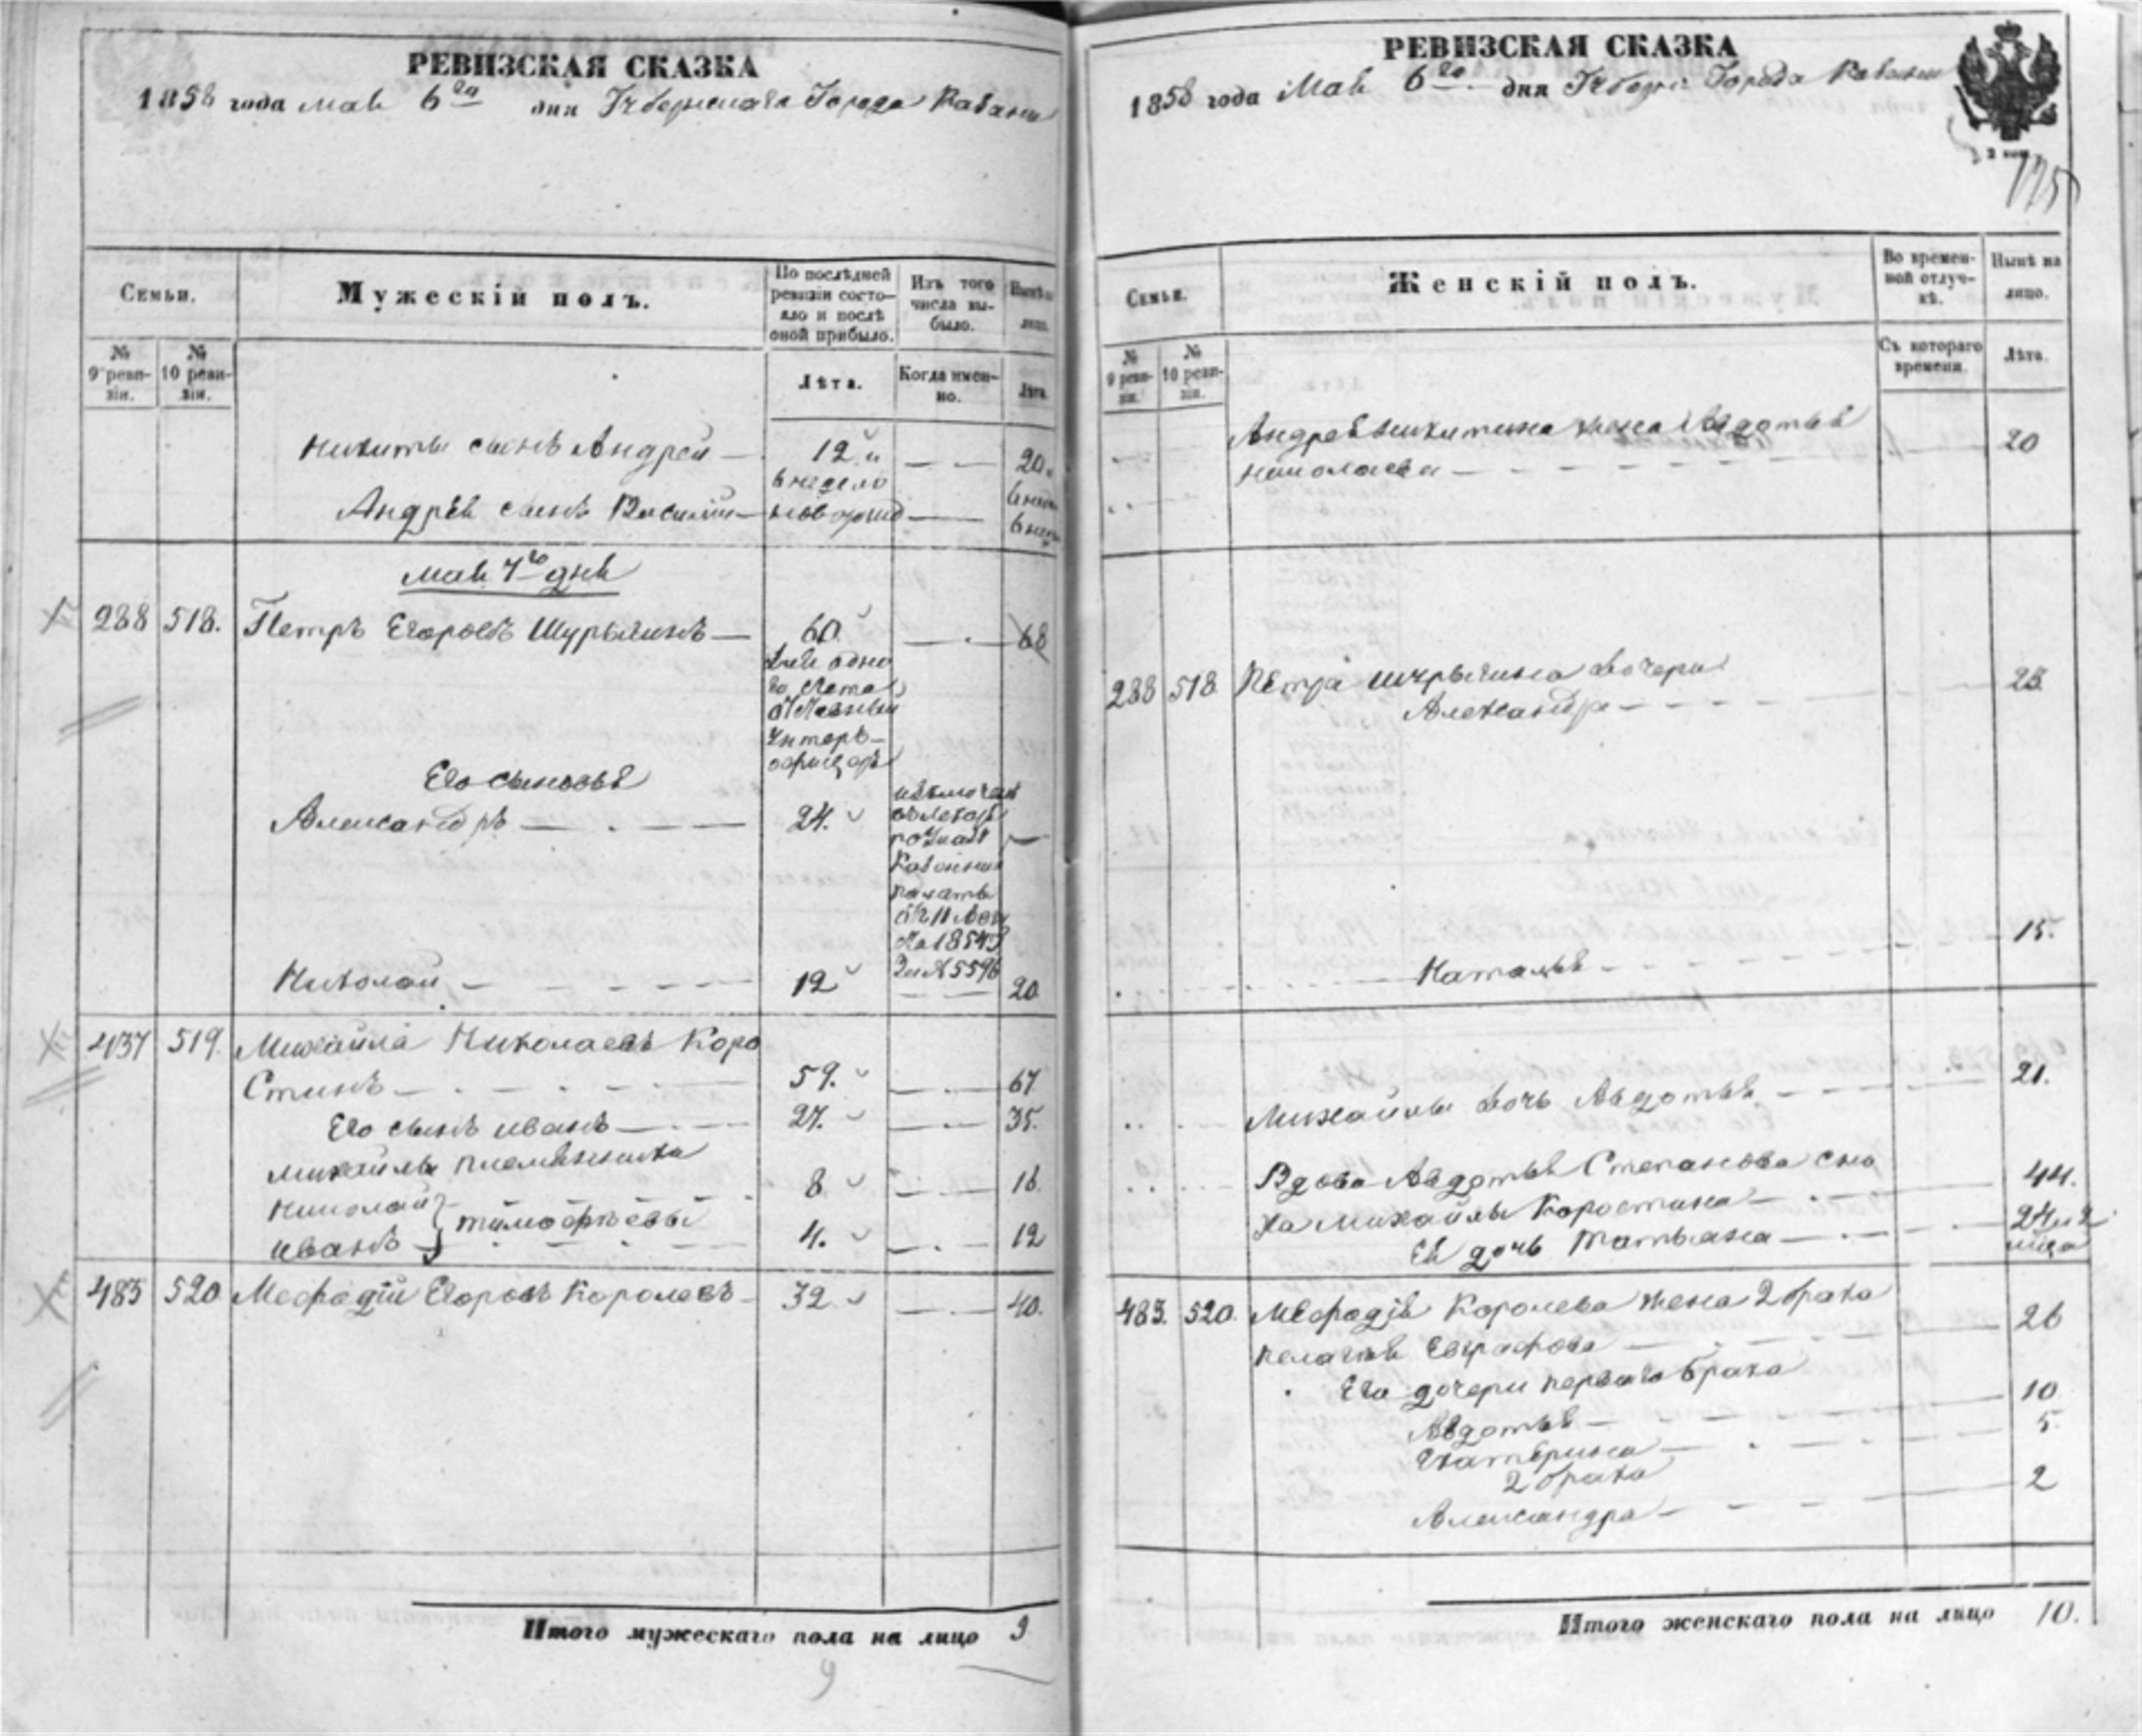 РЕВИЗСКАЯ СКАЗКА
1858 года мая 6го дня Губернскаго Города Казани
Семьи.
Мужескій полъ.
По послѣдней ревизіи состояло и послѣ оной прибыло.
Изъ того числа выбыло.
Нынѣ на лицо.
№ 9 ревизіи.
№ 10 ревизіи.
Лѣта.
Когда именно.
Лѣта.
Никиты сынъ Андрей — 12 20
6 недель
Андрея сынъ Василій — новорожд
мая 7го дня
288 518. Петръ Егоровъ Шурыгинъ — 60 — 68
унтеръ-
офицеръ
Его сыновья
Александръ — 24.
Казенной
палаты
11
1854
За № 5596
Николай — 12 20
437 519. Михайла Николаевъ Коро
стинъ — 59. — 67
Его сынъ Иванъ — 27. — 35.
Михайлы племянники
Николай 8 — 16
Иванъ } Тимофѣевы 4. — 12
483 520 Мефодій Егоровъ Королевъ 32 — 40.
Итого мужескаго пола на лицо 9
9
РЕВИЗСКАЯ СКАЗКА
1858 года Мая 6го дня Губерн: Города Казани
175
Семьи.
Женскій полъ.
Во временной отлучкѣ.
Нынѣ на лицо.
№ 9 ревизіи.
№ 10 ревизіи.
Съ котораго времени.
Лѣта.
Андрея Никитина жена Авдотья 20
Николаева —
288 518 Петра Шурыгина дочери
Александра — 23
Наталья — 15.
Михайлы дочь Авдотья — 21.
Вдова Авдотья Степанова сно
ха Михайлы Коростина — 44.
Ея дочь Татьяна — 24
483. 520. Мефодія Королева жена 2 брака
Пелагея Евграфова — 26
Его дочери перваго брака
Авдотья — 10
Екатерина — 5
2 брака
Александра — 2
Итого женскаго пола на лицо 10.